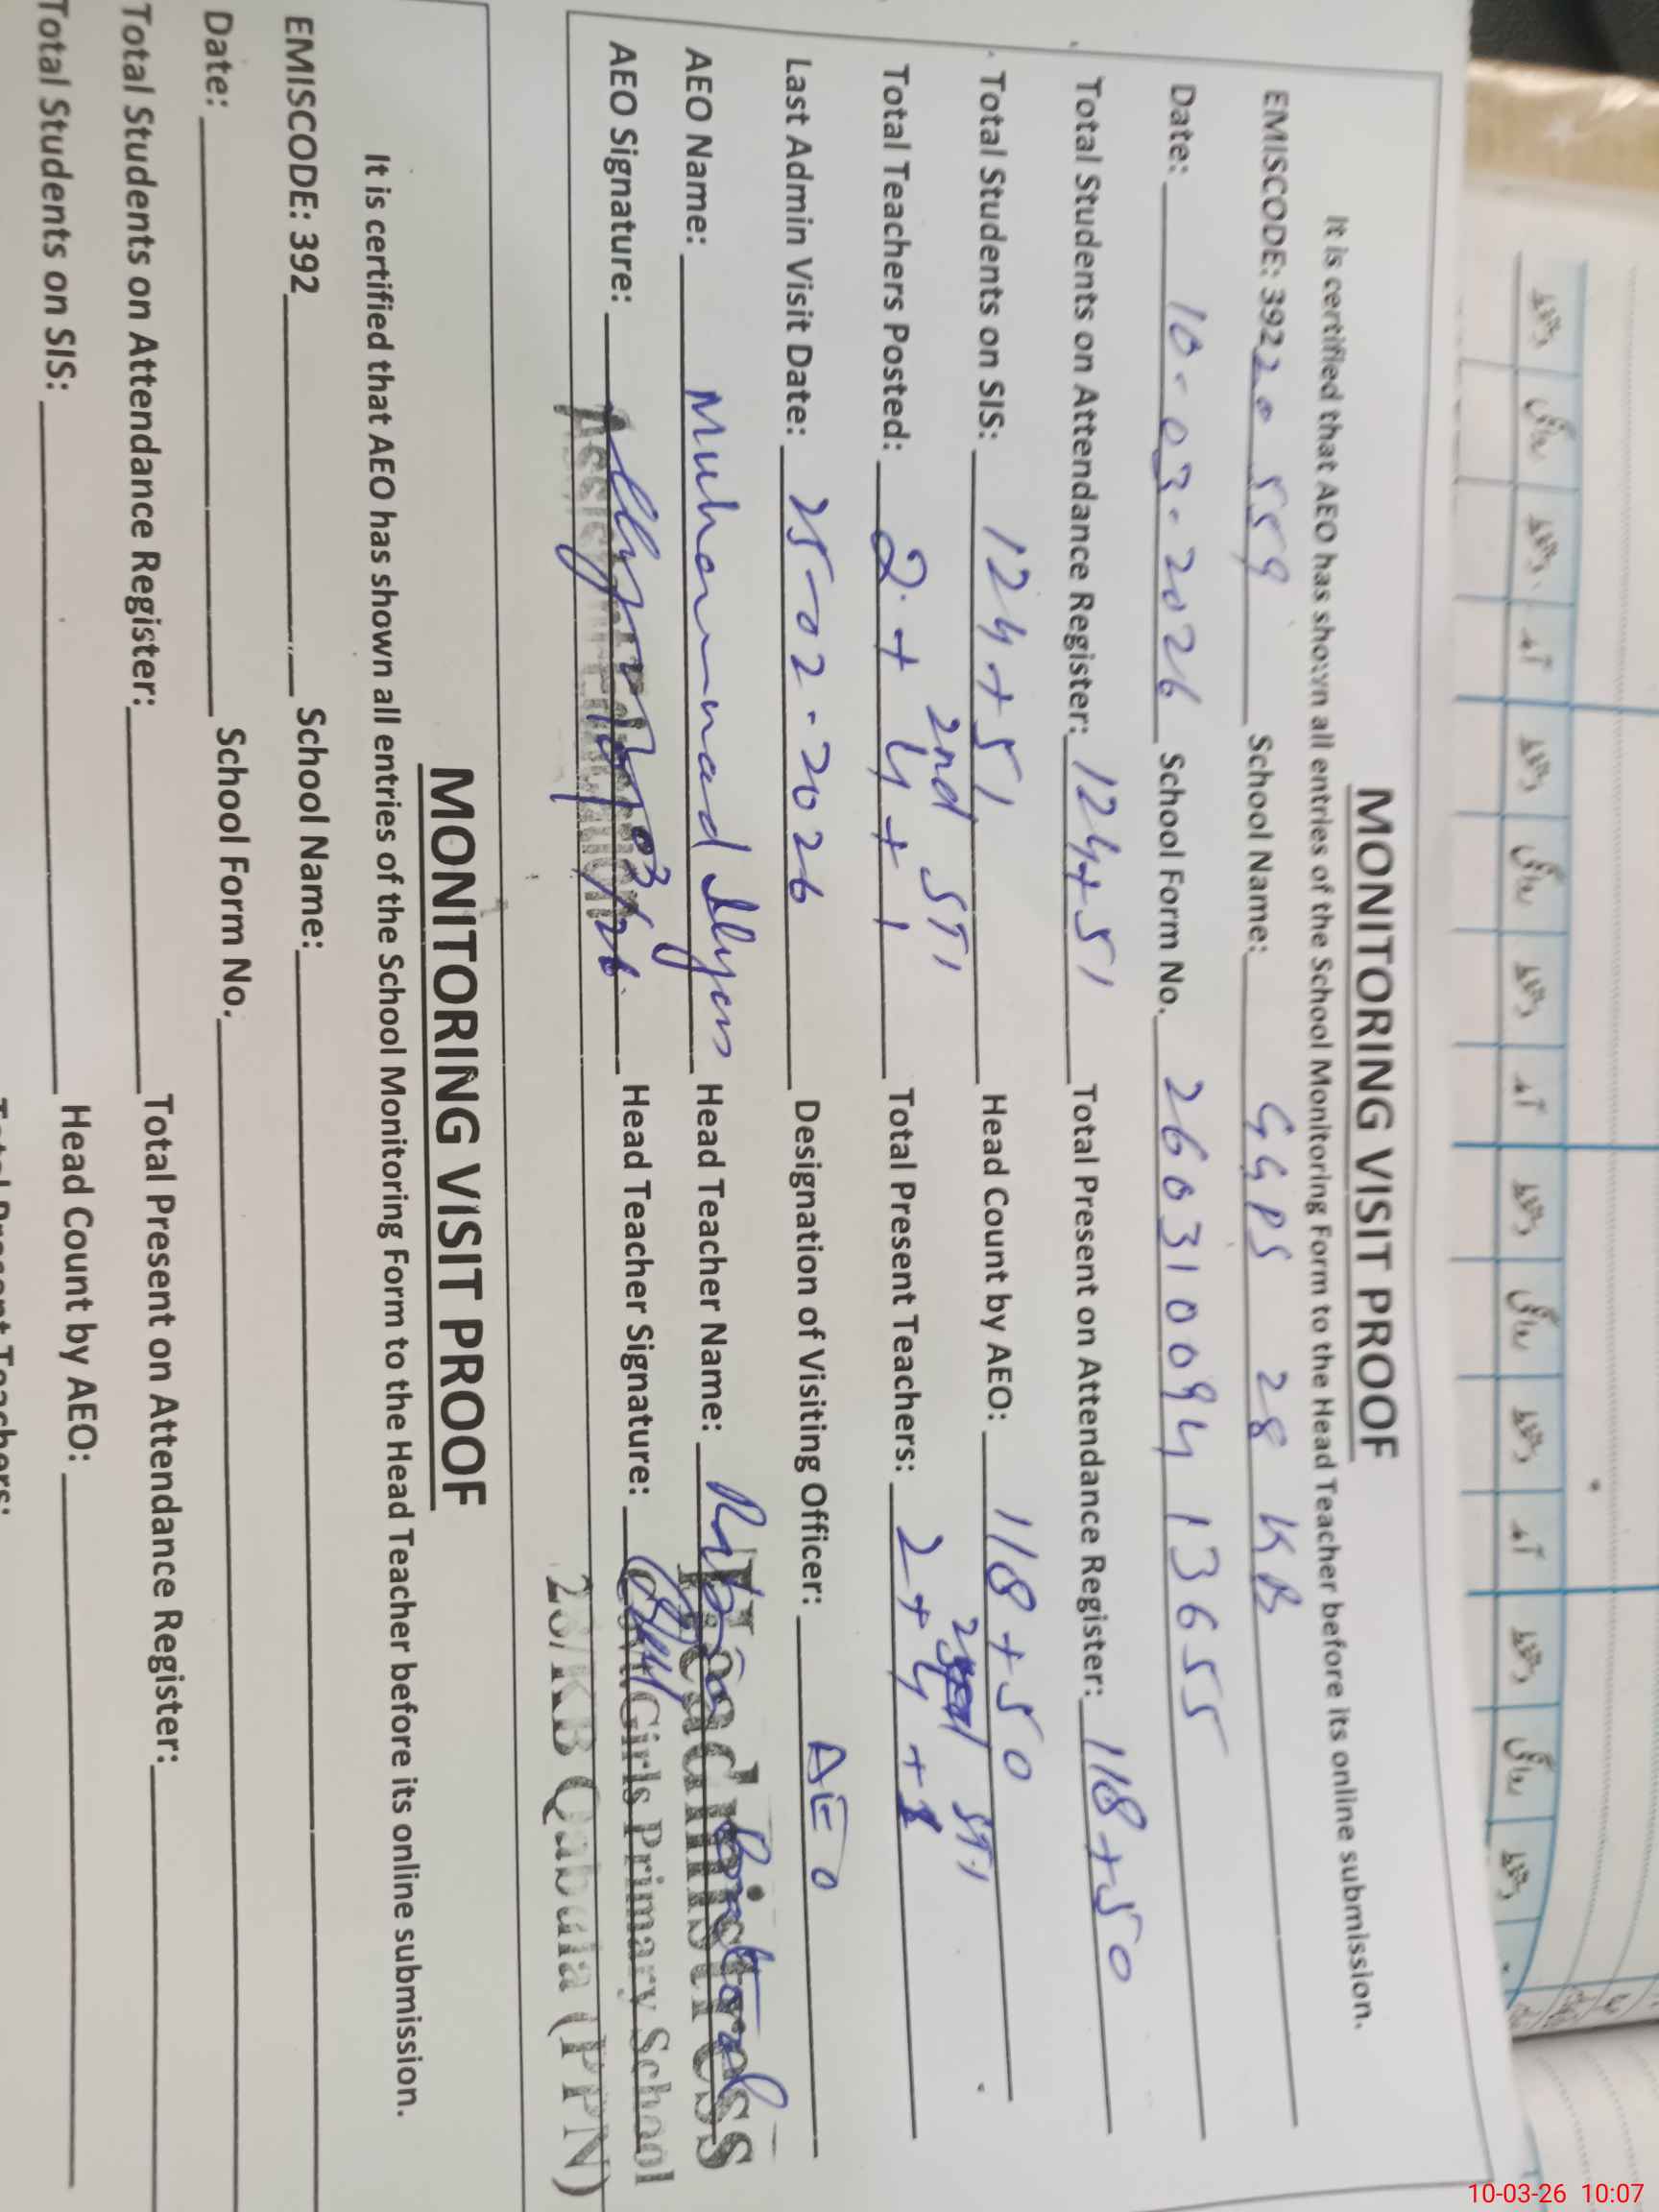 MONITORING VISIT PROOF
It is certified that AEO has shown all entries of the School Monitoring Form to the Head Teacher before its online submission.
EMISCODE: 39220559 School Name: GGPS 28 KB
Date: 10-03-2026 School Form No. 26031009413655
Total Students on Attendance Register: 124+51 Total Present on Attendance Register: 118+50
Total Students on SIS: 124+51 Head Count by AEO: 118+50
2nd STI 2nd STI
Total Teachers Posted: 2+4+1 Total Present Teachers: 2+4+1
Last Admin Visit Date: 25-02-2026 Designation of Visiting Officer: AEO
AEO Name: Muhammad Ilyas Head Teacher Name:
Headmistress
AEO Signature: Head Teacher Signature:
Girls Primary School
28/KB Qabula (PPN)
MONITORING VISIT PROOF
It is certified that AEO has shown all entries of the School Monitoring Form to the Head Teacher before its online submission.
EMISCODE: 392 School Name:
Date: School Form No.
Total Students on Attendance Register: Total Present on Attendance Register:
Total Students on SIS: Head Count by AEO:
Total Present Teachers:
10-03-26 10:07